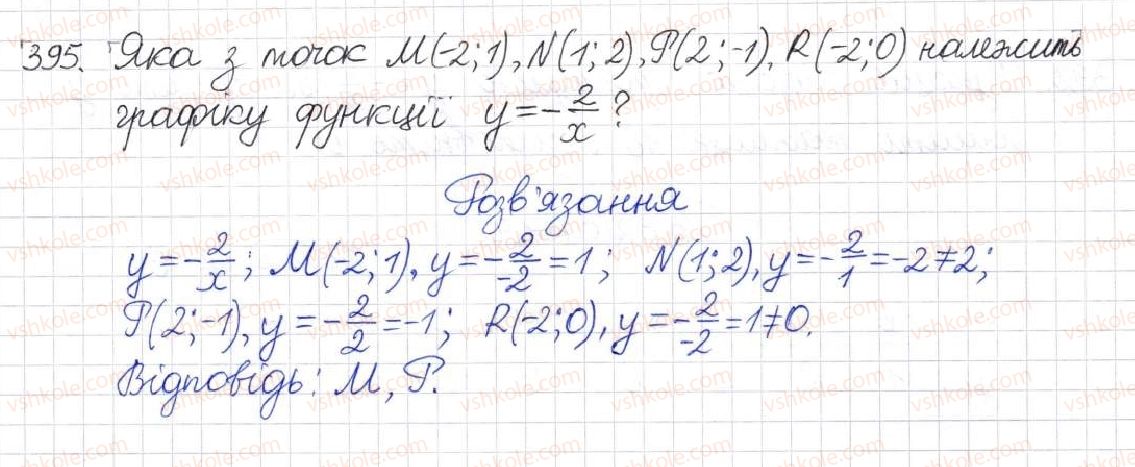 395. Яка з точок M(-2;1), N(1;2), P(2;-1), R(-2;0) належить
графіку функції y = -2/x ?
Розв'язання
y = -2/x; M(-2;1), y = -2/-2 = 1; N(1;2), y = -2/1 = -2 ≠ 2;
P(2;-1), y = -2/2 = -1; R(-2;0), y = -2/-2 = 1 ≠ 0.
Відповідь: M, P.